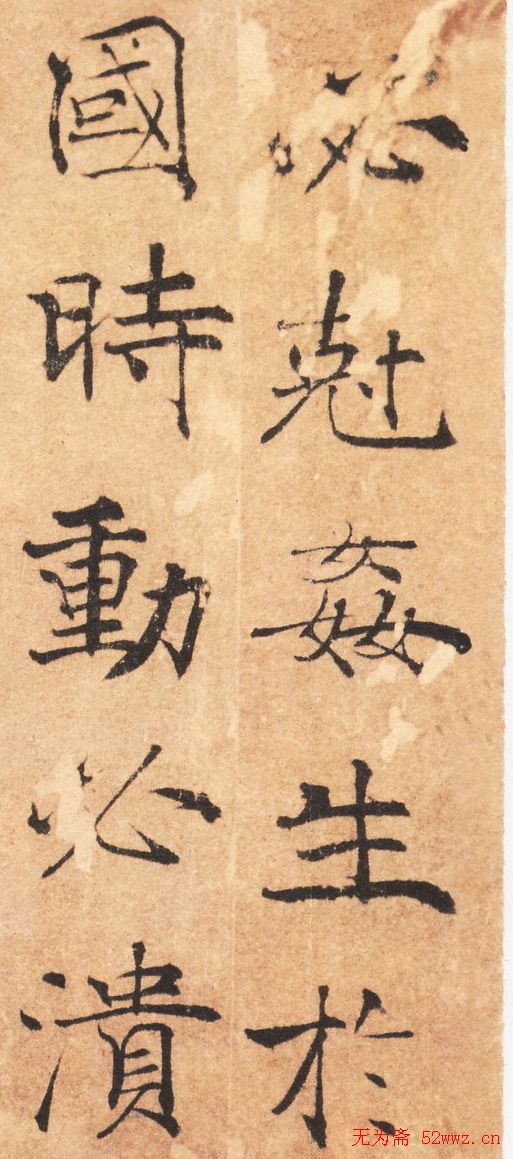 必尅姦生於
國時動必潰
无为斋 52wwz.cn